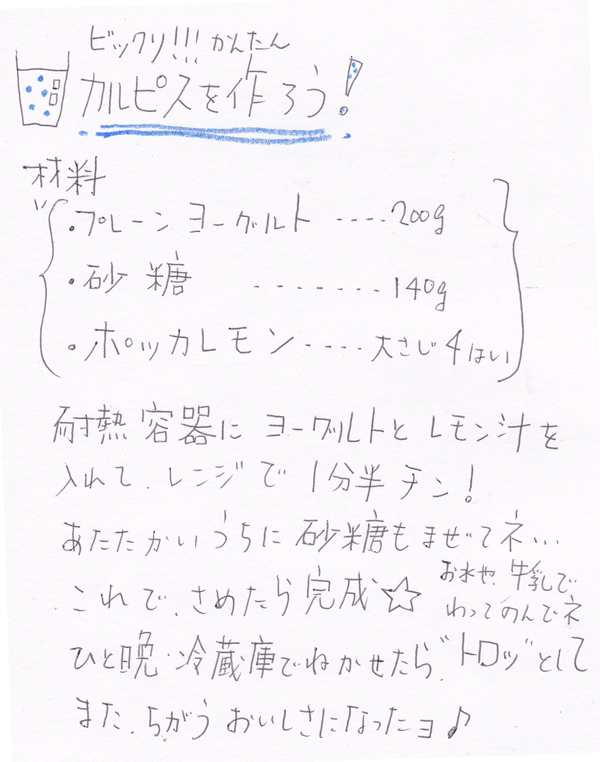 ビックリ!!! かんたん
カルピスを作ろう!
材料
・プレーンヨーグルト ‥‥200g
・砂糖 ‥‥‥‥140g
・ポッカレモン‥‥大さじ4はい
耐熱容器にヨーグルトとレモン汁を
入れて、レンジで1分半チン!
あたたかいうちに砂糖もまぜてネ…
これで、さめたら完成☆
お水や、牛乳で
わってのんでネ
ひと晩・冷蔵庫でねかせたら、"トロッ"として
また、ちがうおいしさになったヨ♪